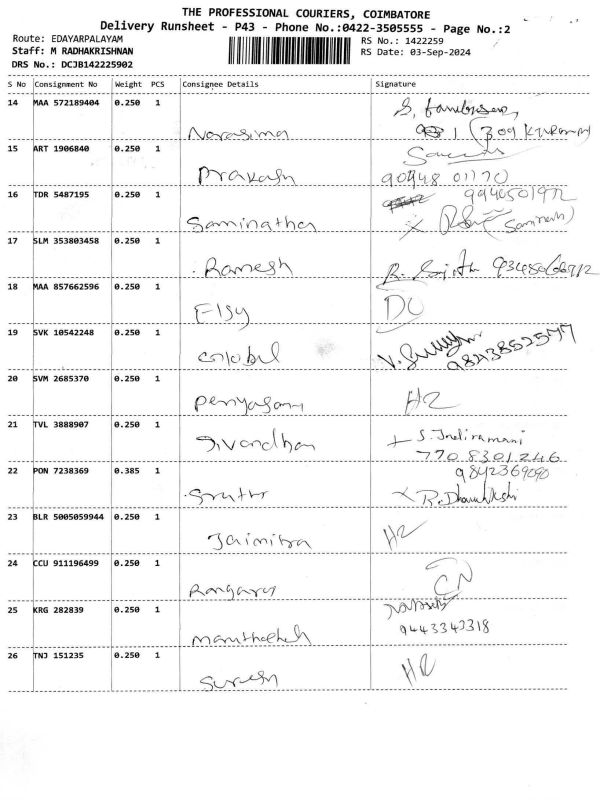 THE PROFESSIONAL COURIERS, COIMBATORE
Delivery Runsheet - P43 - Phone No.:0422-3505555 - Page No.:2
Route: EDAYARPALAYAM
RS No.: 1422259
Staff: M RADHAKRISHNAN
RS Date: 03-Sep-2024
DRS No.: DCJB142225902
S No Consignment No Weight PCS Consignee Details Signature
14 MAA 572189404 0.250 1 Narasima
15 ART 1906840 0.250 1 Prakash 90948 01170
16 TDR 5487195 0.250 1 Saminathan 9940501972
17 SLM 353803458 0.250 1 Ramesh
18 MAA 857662596 0.250 1 Elsy DU
19 SVK 10542248 0.250 1 Global 9843852577
20 SVM 2685370 0.250 1 Periyasami
21 TVL 3888907 0.250 1 Sivandhan S. Indiramani
770 8301246
22 PON 7238369 0.385 1 Sruthi 9842369090
23 BLR 5005059944 0.250 1 Jaimitra
24 CCU 911196499 0.250 1 Rangaraj CN
25 KRG 282839 0.250 1 9443343318
26 TNJ 151235 0.250 1 Suresh